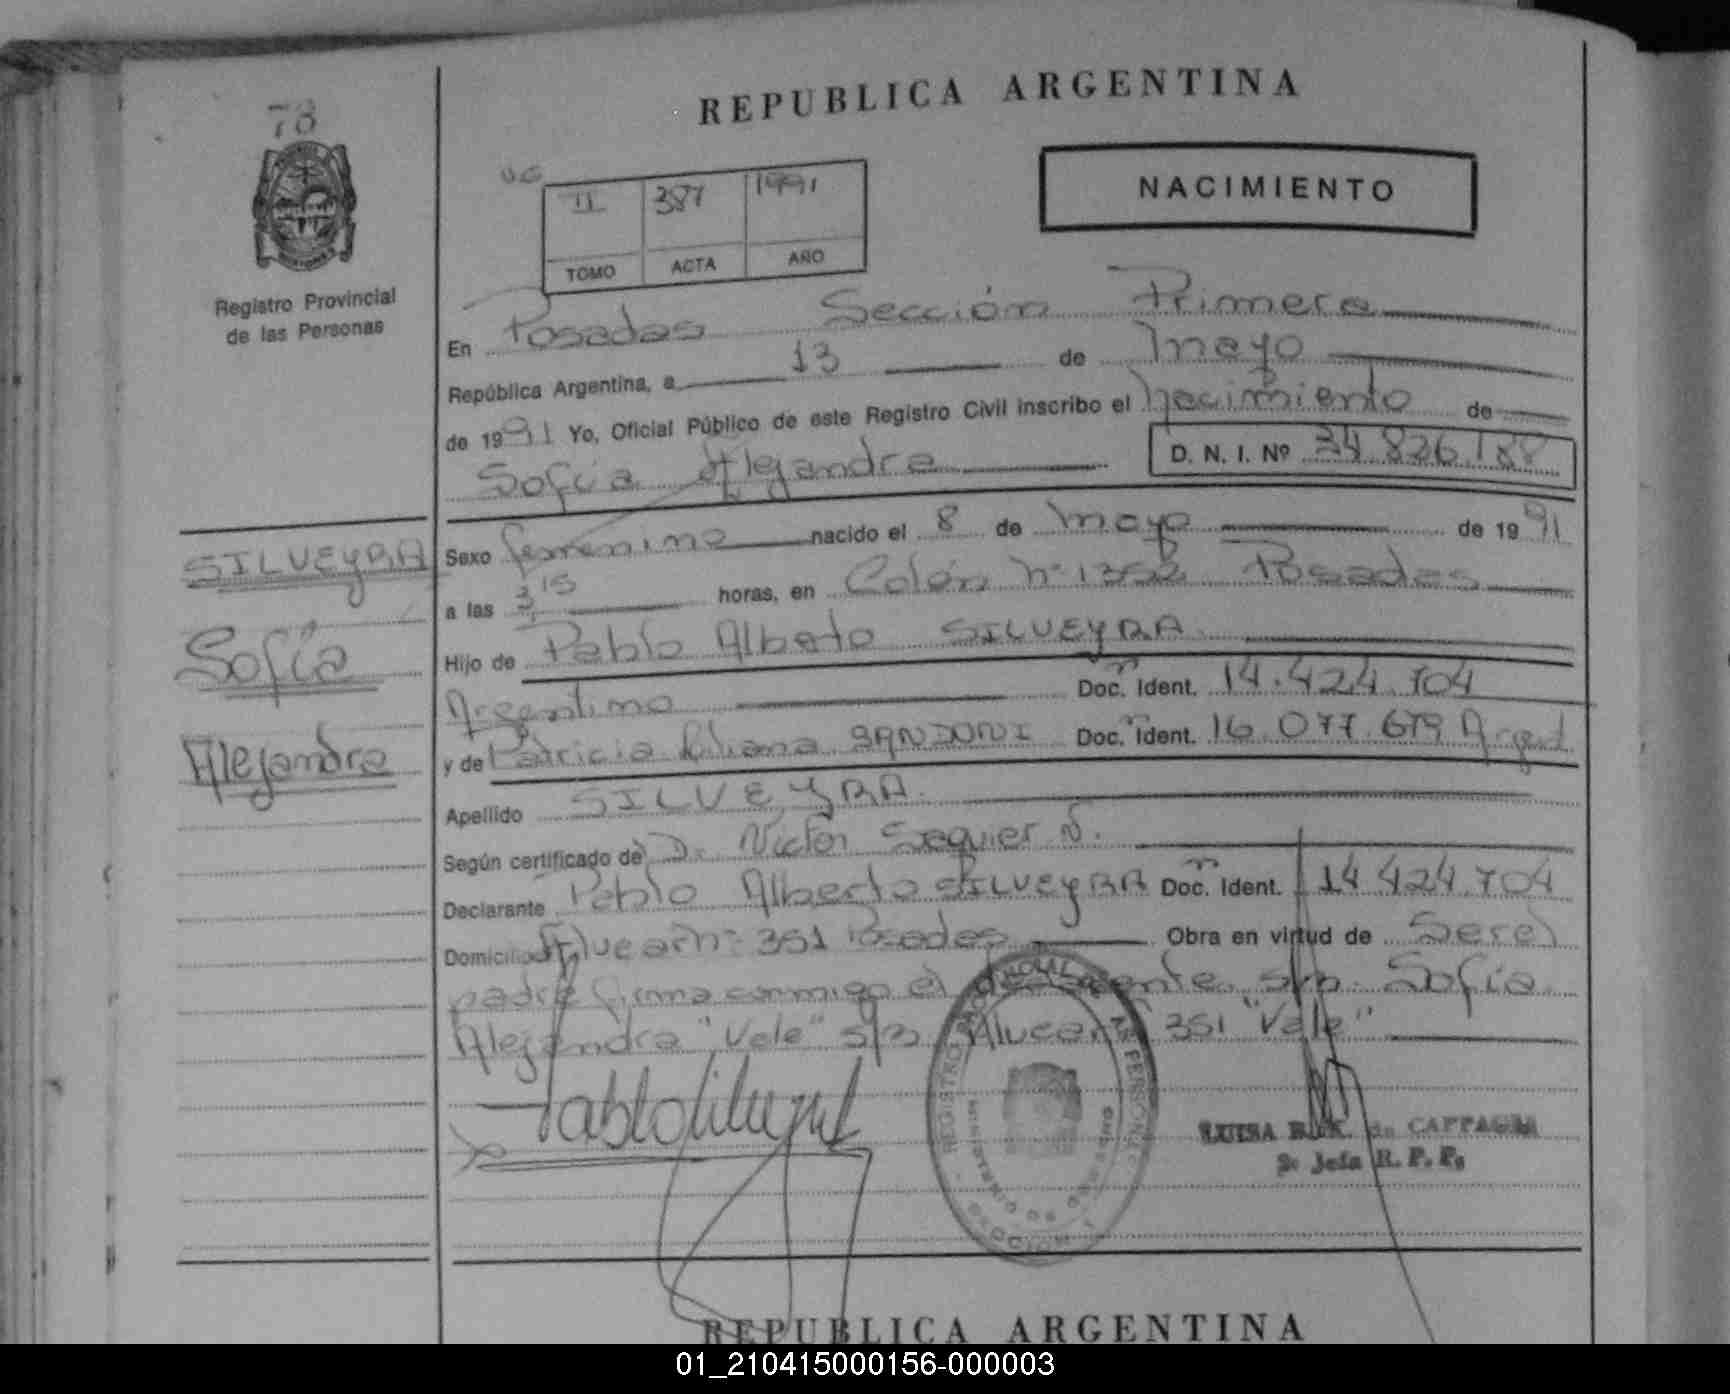 78
REPUBLICA ARGENTINA
NACIMIENTO
II 387 1991
TOMO ACTA AÑO
Registro Provincial
de las Personas
En Posadas Sección Primera
República Argentina, a 13 de mayo
de 1991 Yo, Oficial Público de este Registro Civil inscribo el nacimiento de
Sofía Alejandra D. N. I. Nº 34.826.188
SILVEYRA
Sofía
Alejandra
Sexo femenino nacido el 8 de mayo de 1991
a las 3,15 horas, en Colón nº 1352 Posadas
Hijo de Pablo Alberto SILVEYRA
Argentino Doc. Ident. 14.424.704
y de Patricia Liliana SANDONI Doc. Ident. 16.077.679 Argent
Apellido SILVEYRA
Según certificado de Dr. Victor Seguier N.
Declarante Pablo Alberto SILVEYRA Doc. Ident. 14 424.704
Domicilio Alvear nº 351 Posadas Obra en virtud de Ser el
padre firma conmigo el s/r. Sofía
Alejandra "Vale" s/r Alvear 351 "Vale"
de CAPPAGLI
2º Jefa R. P. P.
REPUBLICA ARGENTINA
01_210415000156-000003